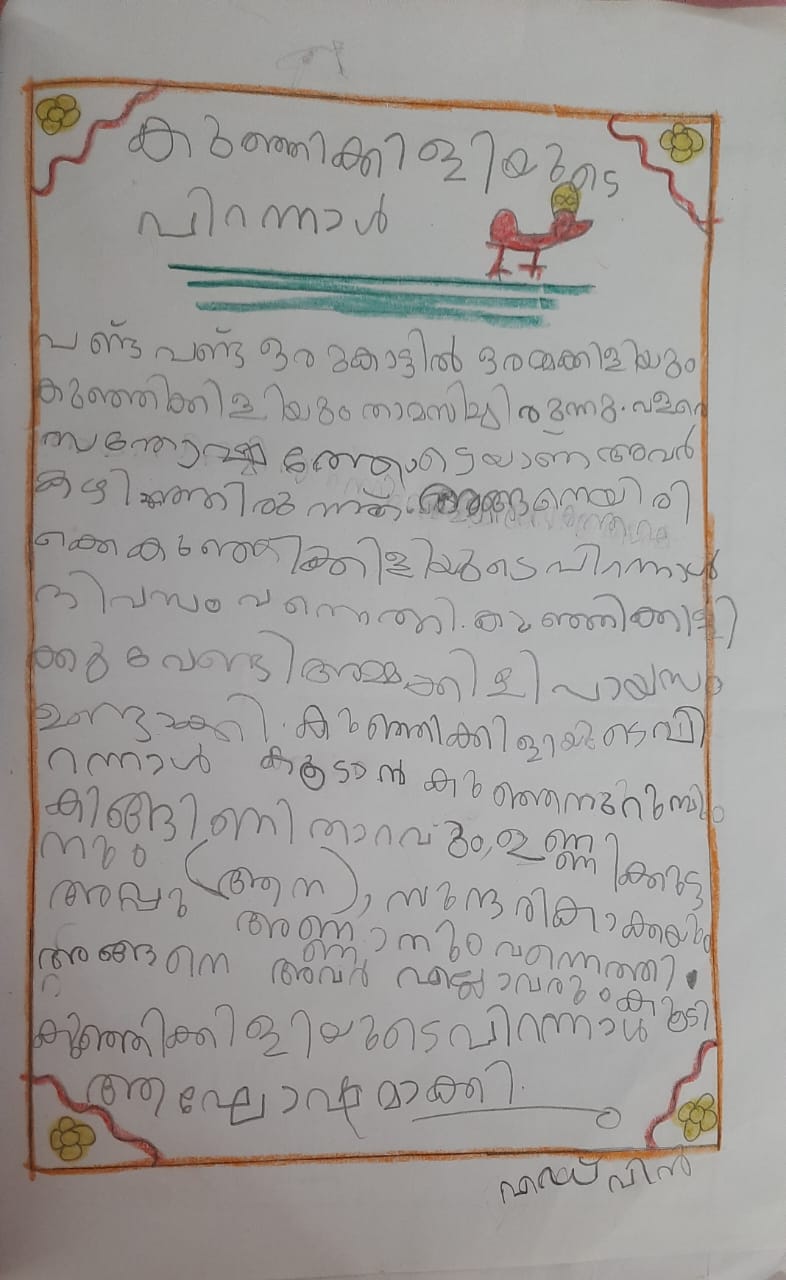 കുഞ്ഞിക്കിളിയുടെ
പിറന്നാൾ
പണ്ട് പണ്ട് ഒരു കാട്ടിൽ ഒരമ്മക്കിളിയും
കുഞ്ഞിക്കിളിയും താമസിച്ചിരുന്നു. വളരെ
സന്തോഷത്തോടെയാണ് അവർ
കഴിഞ്ഞിരുന്നത്. അങ്ങനെയിരി
ക്കെ കുഞ്ഞിക്കിളിയുടെ പിറന്നാൾ
ദിവസം വന്നെത്തി. കുഞ്ഞിക്കിളി
ക്കു വേണ്ടി അമ്മക്കിളി പായസം
ഉണ്ടാക്കി. കുഞ്ഞിക്കിളിയുടെ പി
റന്നാൾ കൂടാൻ കുഞ്ഞനുറുമ്പും
കിങ്ങിണി താറാവും, ഉണ്ണിക്കുട്ട
നും
അപ്പു (ആന), സുന്ദരികാക്കയും
അണ്ണാനും വന്നെത്തി.
അങ്ങനെ അവർ എല്ലാവരും കൂടി
കുഞ്ഞിക്കിളിയുടെ പിറന്നാൾ
ആഘോഷമാക്കി.
എഡ്വിൻ